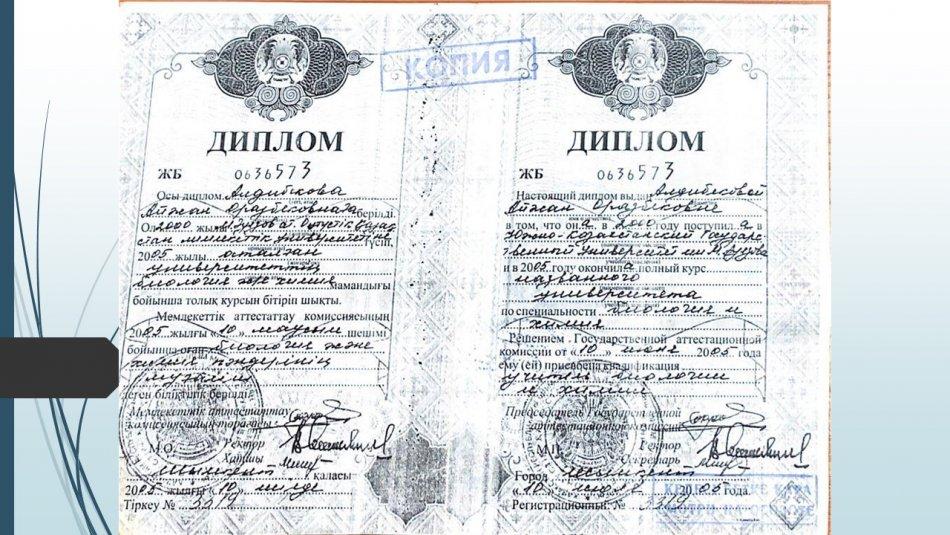 КОПИЯ
ДИПЛОМ
ЖБ 0636573
Осы диплом Алдибекова
Айжан Оразбековнаға берілді.
Ол 2000 жылы М.Әуезов Оңтүстік Қазақ
стан мемлекеттік Университетіне түсіп,
2005 жылы аталған
университеттің
биология және химия мамандығы
бойынша толық курсын бітіріп шықты.
Мемлекеттік аттестаттау комиссиясының
2005 жылғы «10» маусым шешімі
бойынша оған биология және
химия пәндерінің
мұғалімі
деген біліктілік берілді.
Мемлекеттік аттестаттау
комиссиясының төрағасы
М.О. Ректор
Хатшы
Шымкент қаласы
2005 жылғы «10» шілде
Тіркеу №
ДИПЛОМ
ЖБ 0636573
Настоящий диплом выдан Алдибековой
Айжан Оразбековне
в том, что она в 2000 году поступила в
Южно Казахстанский Государс
твенный Университет им М.Ауезова
и в 2005 году окончила полный курс
названного
университета
по специальности биология и
химия
Решением Государственной аттестационной
комиссии от «10» июня 2005 года
ему (ей) присвоена квалификация
учитель биологии
и химии
Председатель Государственной
аттестационной комиссии
М.П. Ректор
Секретарь
Город Шымкент
«10» июля 2005 года.
Регистрационный №